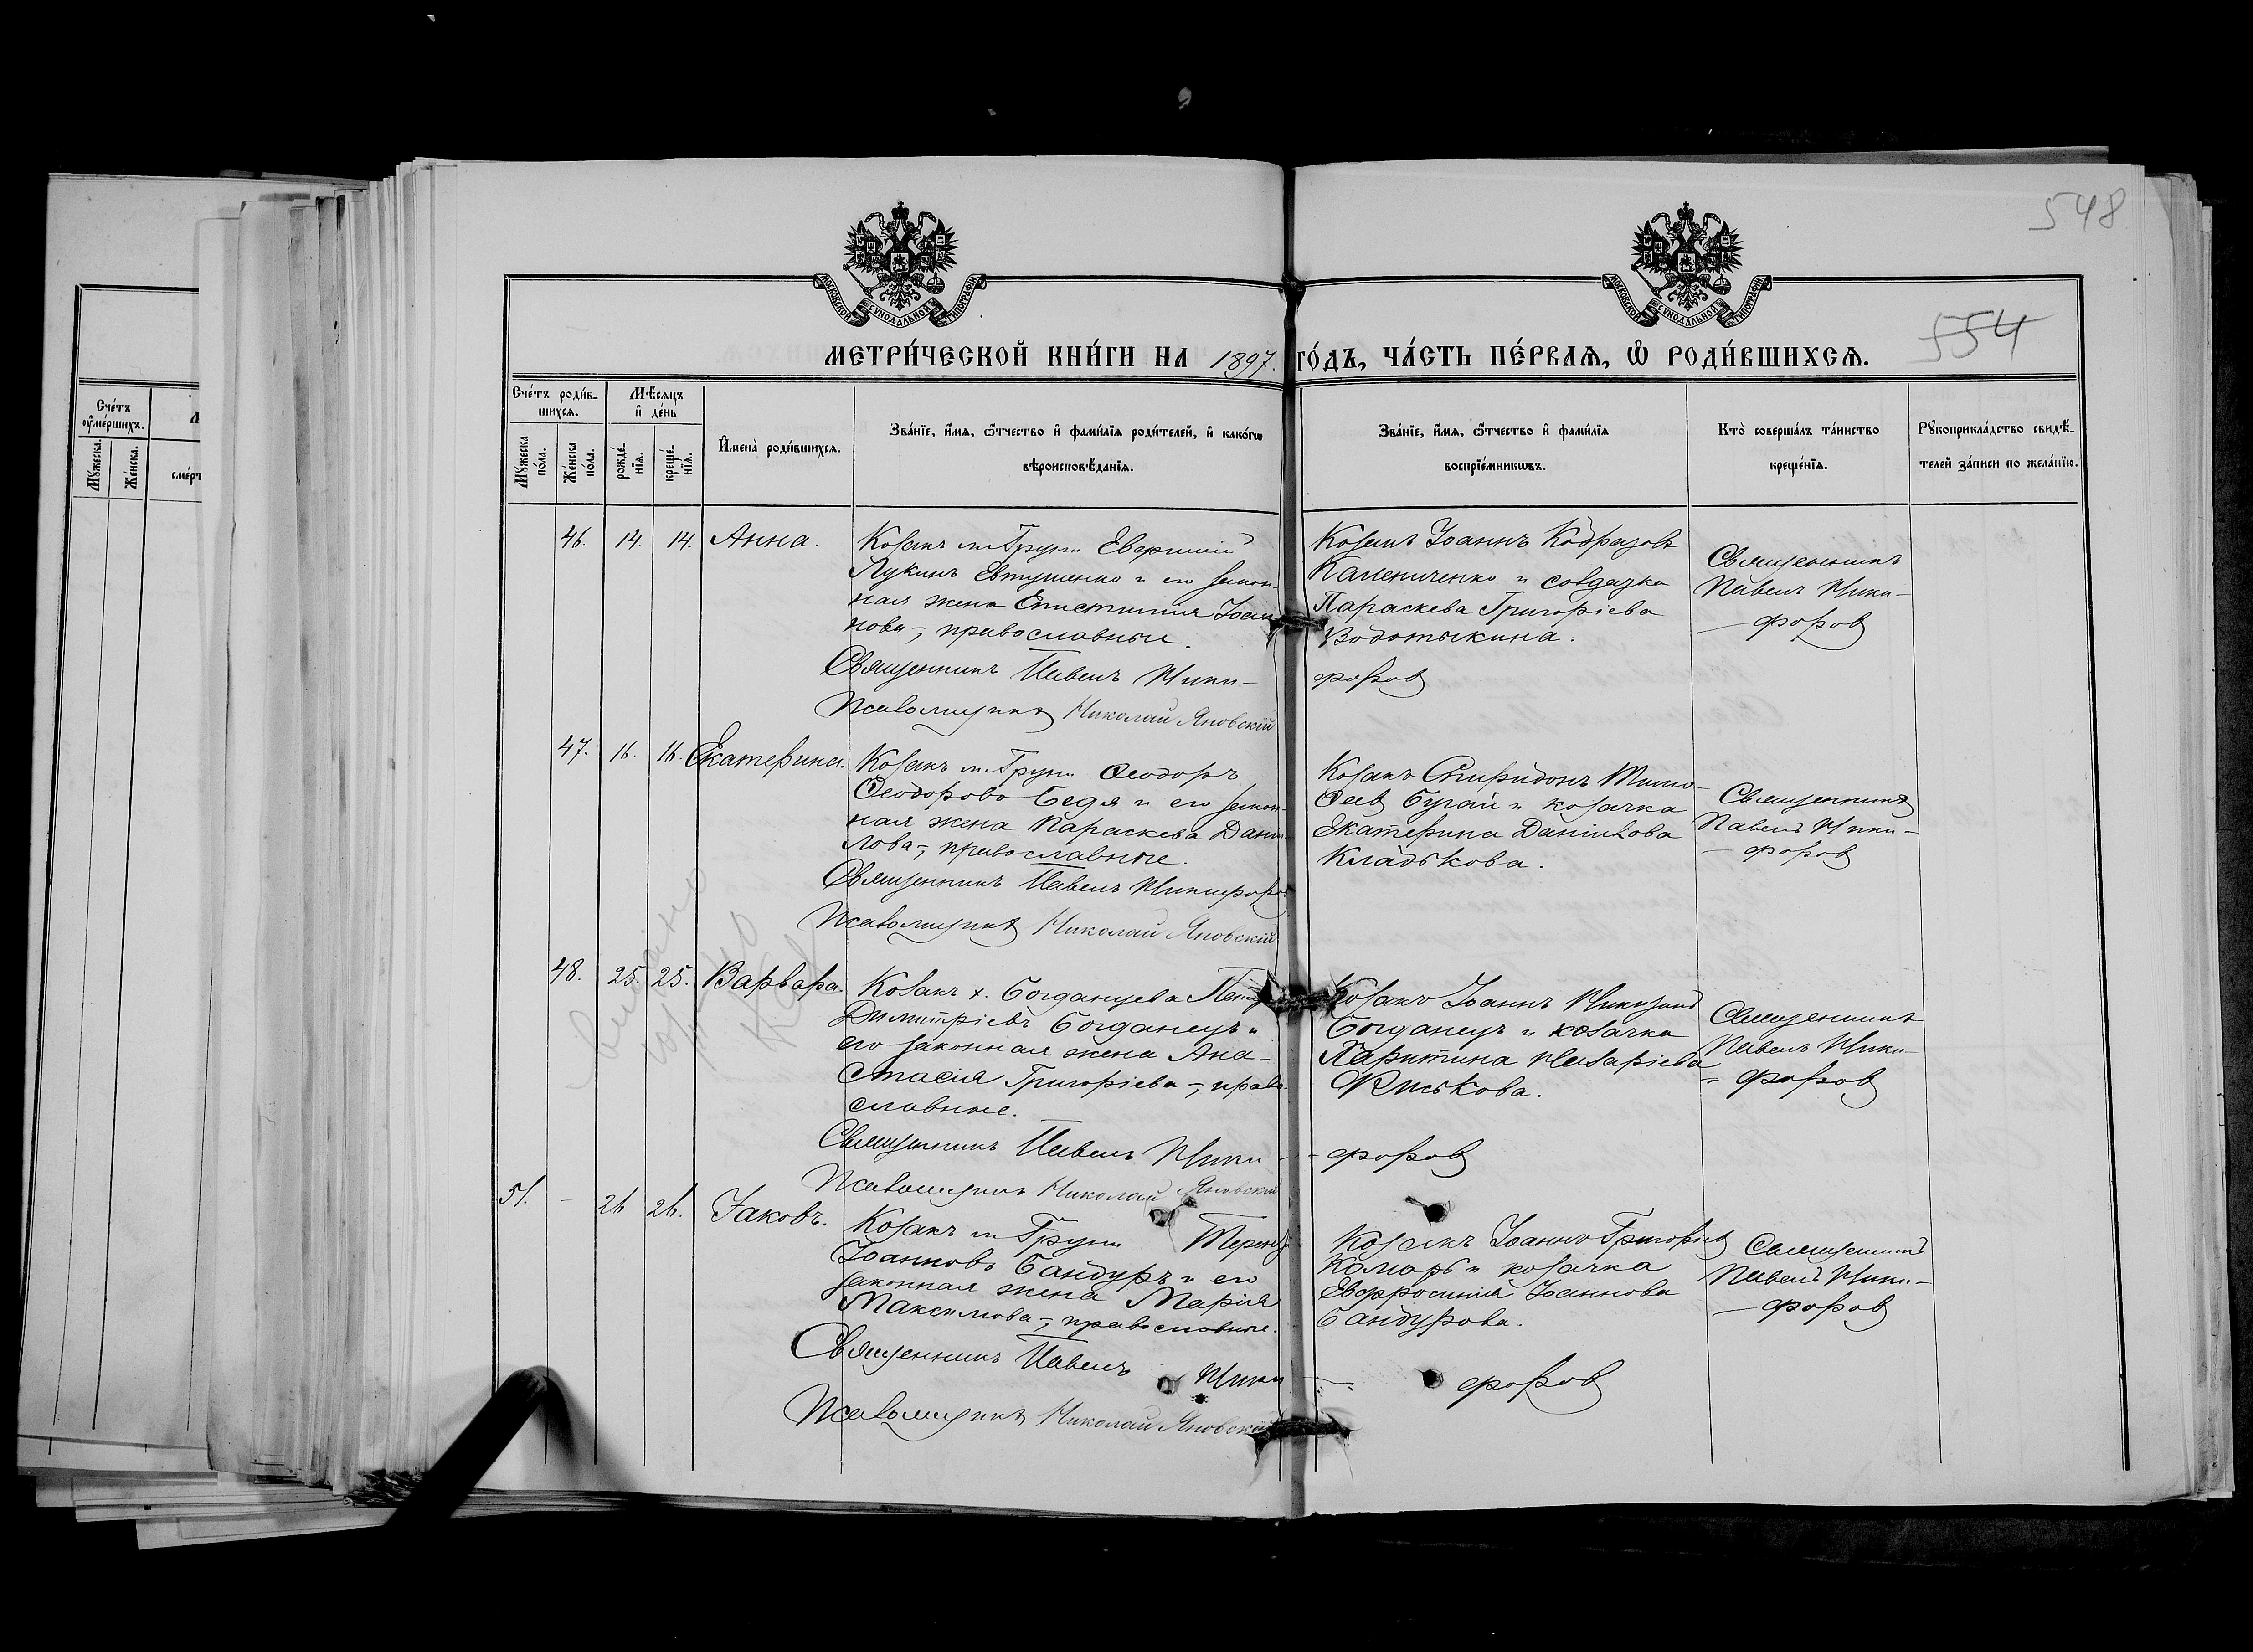 548
554
МОСКОВСКОЙ СѴНОДАЛЬНОЙ ТИПОГРАФІИ
МОСКОВСКОЙ СѴНОДАЛЬНОЙ ТИПОГРАФІИ
МЕТРИ́ЧЕСКОЙ КНИ́ГИ НА 1897. ГО́ДЪ, ЧА́СТЬ ПЕ́РВАЯ, Ѡ҃ РОДИ́ВШИХСЯ.
Счетъ умершихъ.
Мужеска.
Женска.
Сче́тъ роди́вшихся.
Мужеска по́ла.
Же́нска по́ла.
Мѣ́сяцъ и де́нь
рожде́нїя.
креще́нїя.
Имена̀ роди́вшихся.
Зва́нїе, и́мя, ѻ҆́тчество и фами́лїя роди́телей, и како́гѡ
вѣроисповѣ́данїя.
Зва́нїе, и́мя, ѻ҆́тчество и фами́лїя
воспрїе́мникѡвъ.
Кто̀ соверша́лъ та́инство
креще́нїя.
Рукоприкла́дство свидѣ́-
телей за́писи по жела́нїю.
46. 14. 14. Анна.
Козакъ м. Груни
Лукинъ Евтушенко и его закон-
ная жена Епистимия Іоан
нова-, православные.
Священникъ Павелъ Ники-
форов
Псаломщикъ Николай Яновскій
Козакъ Іоаннъ
Калениченко и солдатка
Параскева Григоріева
Водотыкина.
Священникъ
Павелъ Ники-
форов
47. 16. 16. Екатерина.
Козакъ м. Груни Ѳеодоръ
Ѳеодоровъ Бедя и его закон-
ная жена Параскева Дани
лова-, православные.
Священникъ Павелъ Никифоров
Псаломщикъ Николай Яновскій
Козакъ Спиридонъ Тимо-
ѳеев Бугай и козачка
Екатерина Даніилова
Кладькова.
Священникъ
Павелъ Ники-
форов
48. 25. 25. Варвара.
Козакъ х. Богданцева
Димитріевъ Богданецъ и
его законная жена Ана-
стасія Григоріева-, право
славные.
Священникъ Павелъ Ники-
форов
Псаломщикъ Николай Яновскій
Козакъ Іоаннъ
Богданецъ и козачка
Харитина Назаріева
Киськова.
Священникъ
Павелъ Ники-
форов
51. - 26 26. Іаковъ.
Козакъ м. Груни
Іоанновъ Бандуръ и его
законная жена Марія
Максимова-, православные.
Священникъ Павелъ Ники
форов
Псаломщикъ Николай Яновскій
Козакъ Іоаннъ Григоріев
Комаръ и козачка
Евфросинія Іоаннова
Бандурова.
Священникъ
Павелъ Ники-
форов